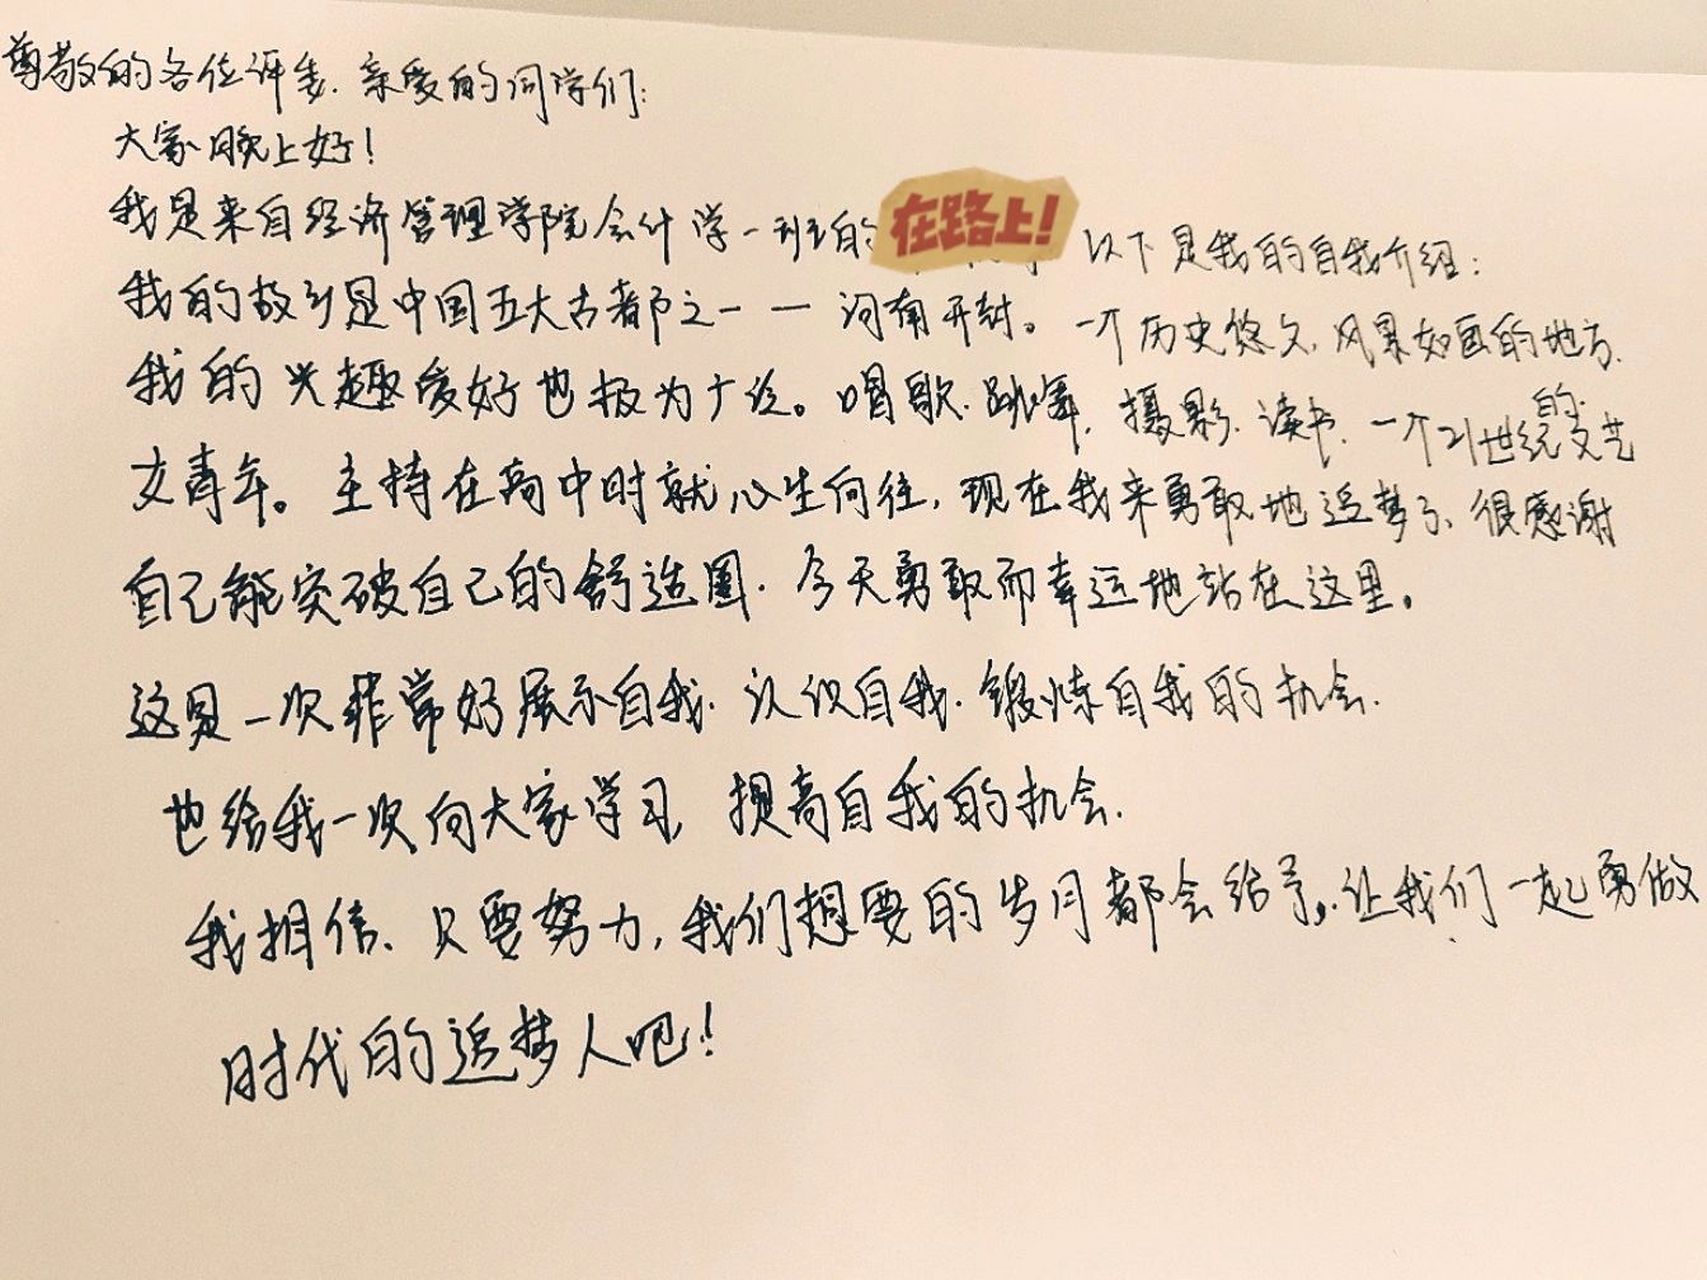 尊敬的各位评委、亲爱的同学们：
大家晚上好！
我是来自经济管理学院会计学一班的 在路上！ 以下是我的自我介绍：
我的故乡是中国五大古都之一 — 河南开封。一个历史悠久、风景如画的地方、
我的兴趣爱好也极为广泛。唱歌、跳舞、摄影、读书、一个21世纪的文艺
文青年。主持在高中时就心生向往，现在我来勇敢地追梦了、很感谢
自己能突破自己的舒适圈、今天勇敢而幸运地站在这里。
这是一次非常好展示自我、认识自我、锻炼自我的机会、
也给我一次向大家学习、提高自我的机会、
我相信、只要努力，我们想要的岁月都会给予，让我们一起勇做
时代的追梦人吧！